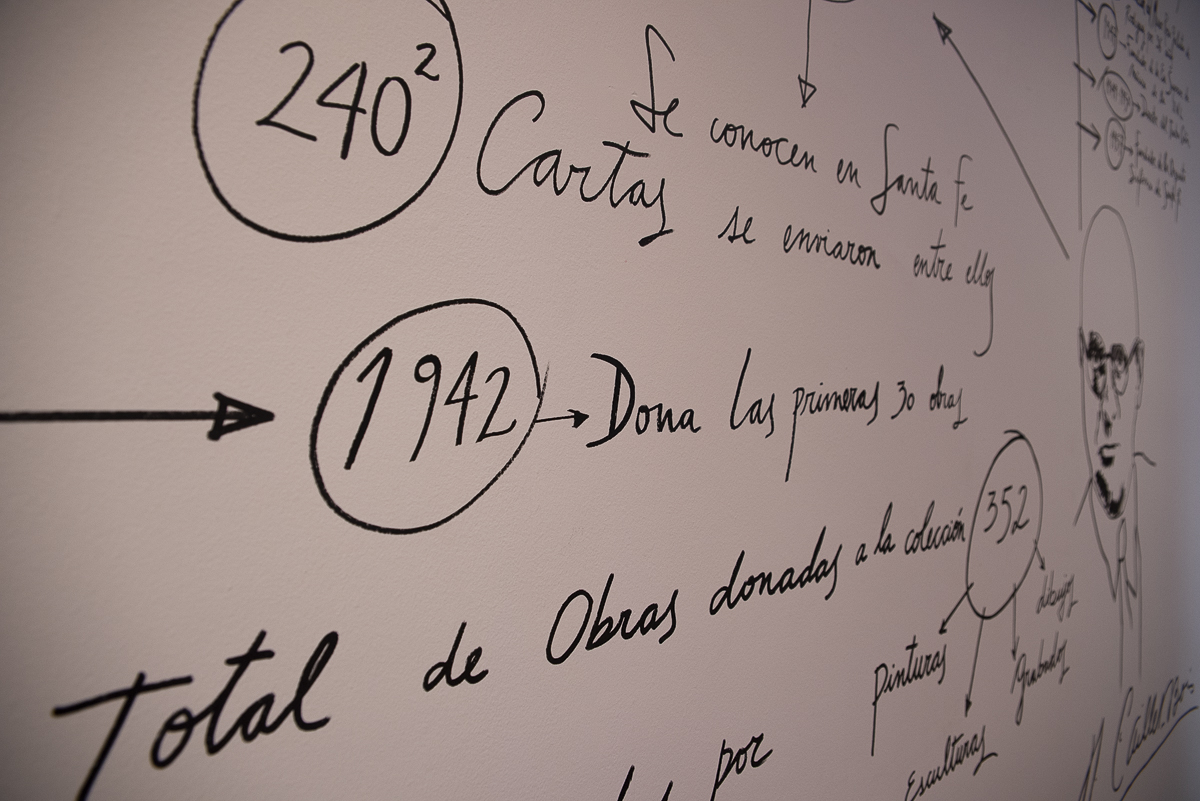 240²
Se conocen en Santa Fe
Cartas se enviaron entre ellos
1942 Dona las primeras 30 obras
Total de Obras donadas a la colección 352
dibujos
Grabados
pinturas
Esculturas
por